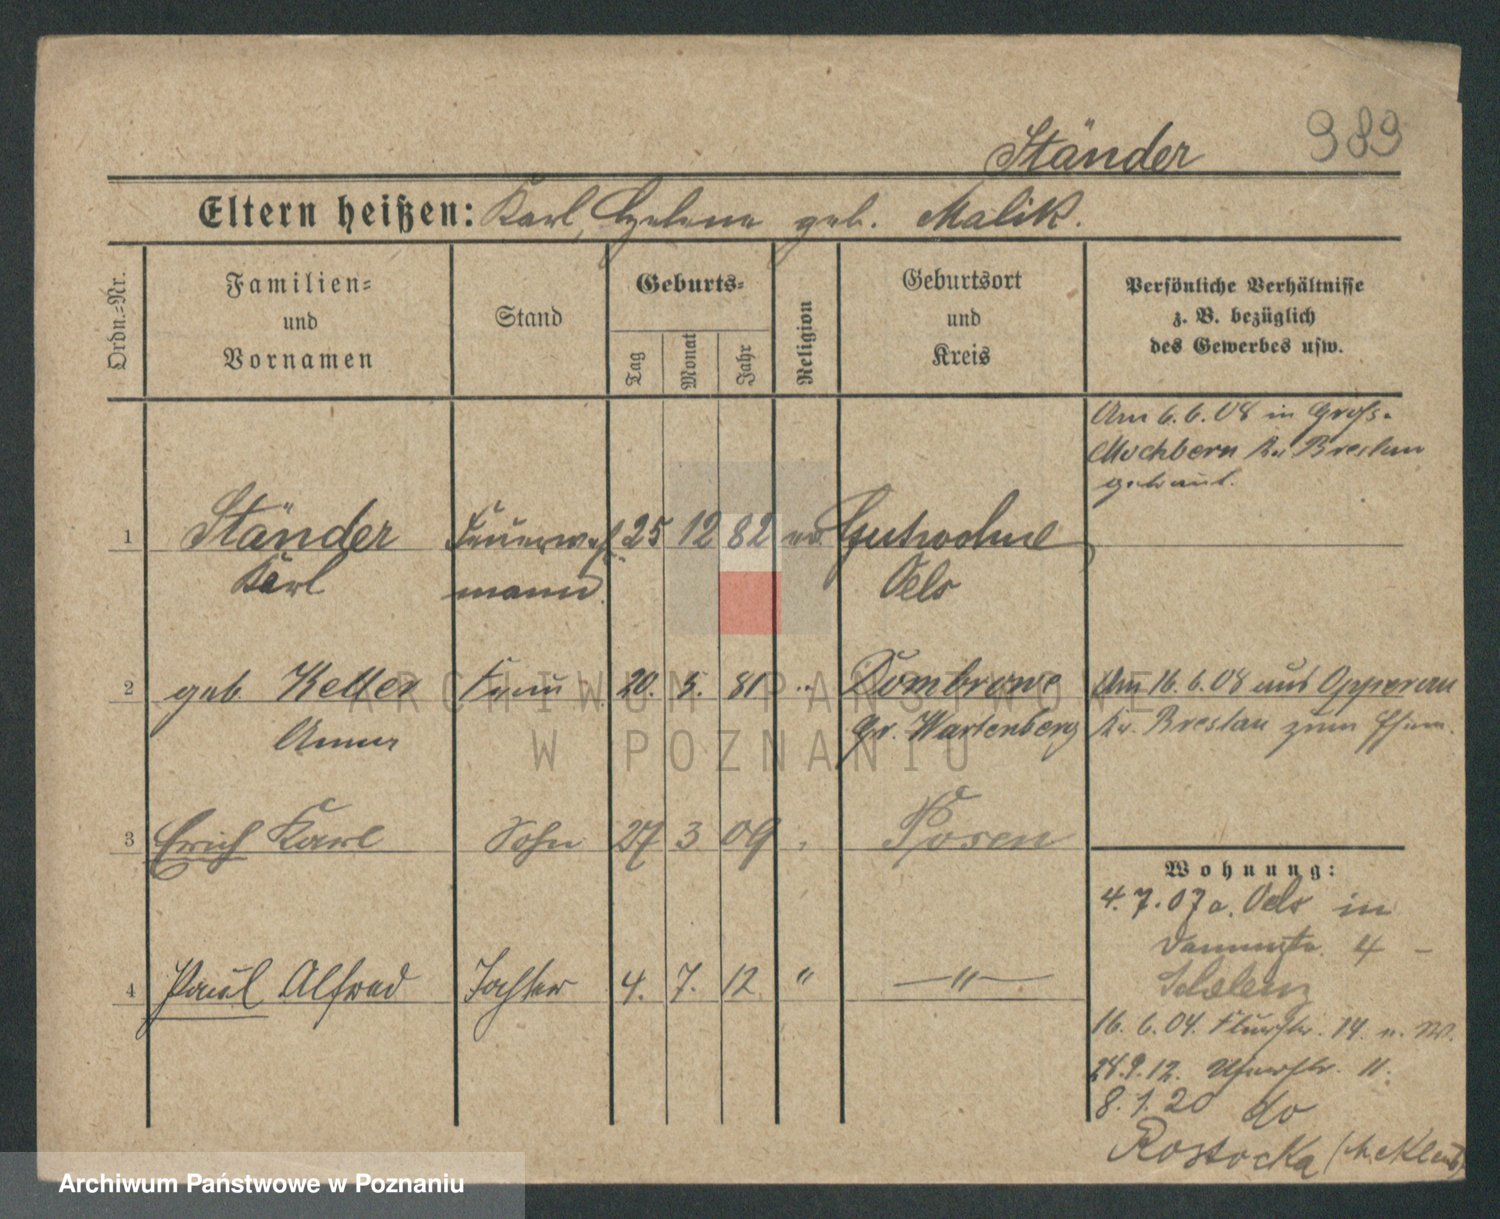 Ständer 989
Eltern heißen: Karl, Helene geb. Malik.
Ordn.=Nr.
Familien=
und
Vornamen
Stand
Geburts=
Tag
Monat
Jahr
Religion
Geburtsort
und
Kreis
Persönliche Verhältnisse
z. B. bezüglich
des Gewerbes usw.
Am 6.6.08 in Groß-
Mochbern Kr. Breslau
getraut.
1 Ständer Feuerwehr 25 12 82 ev. Gutwohne
Karl mann. Oels
2 geb. Keller Frau 20. 5. 81 " Dombrowe
Anna Gr. Wartenberg
Am 16.6.08 aus Opperau
Kr. Breslau zum
3 Erich Karl Sohn 27 3 09 " Posen
4 Paul Alfred 4. 7. 12 " —"—
Wohnung:
4.7.07 a. Oels in
4 –
16. 6. 04. Flurstr. 14 n. W.
28.9.12. 11.
8.1.20 do
Rostocka
ARCHIWUM PAŃSTWOWE
W POZNANIU
Archiwum Państwowe w Poznaniu